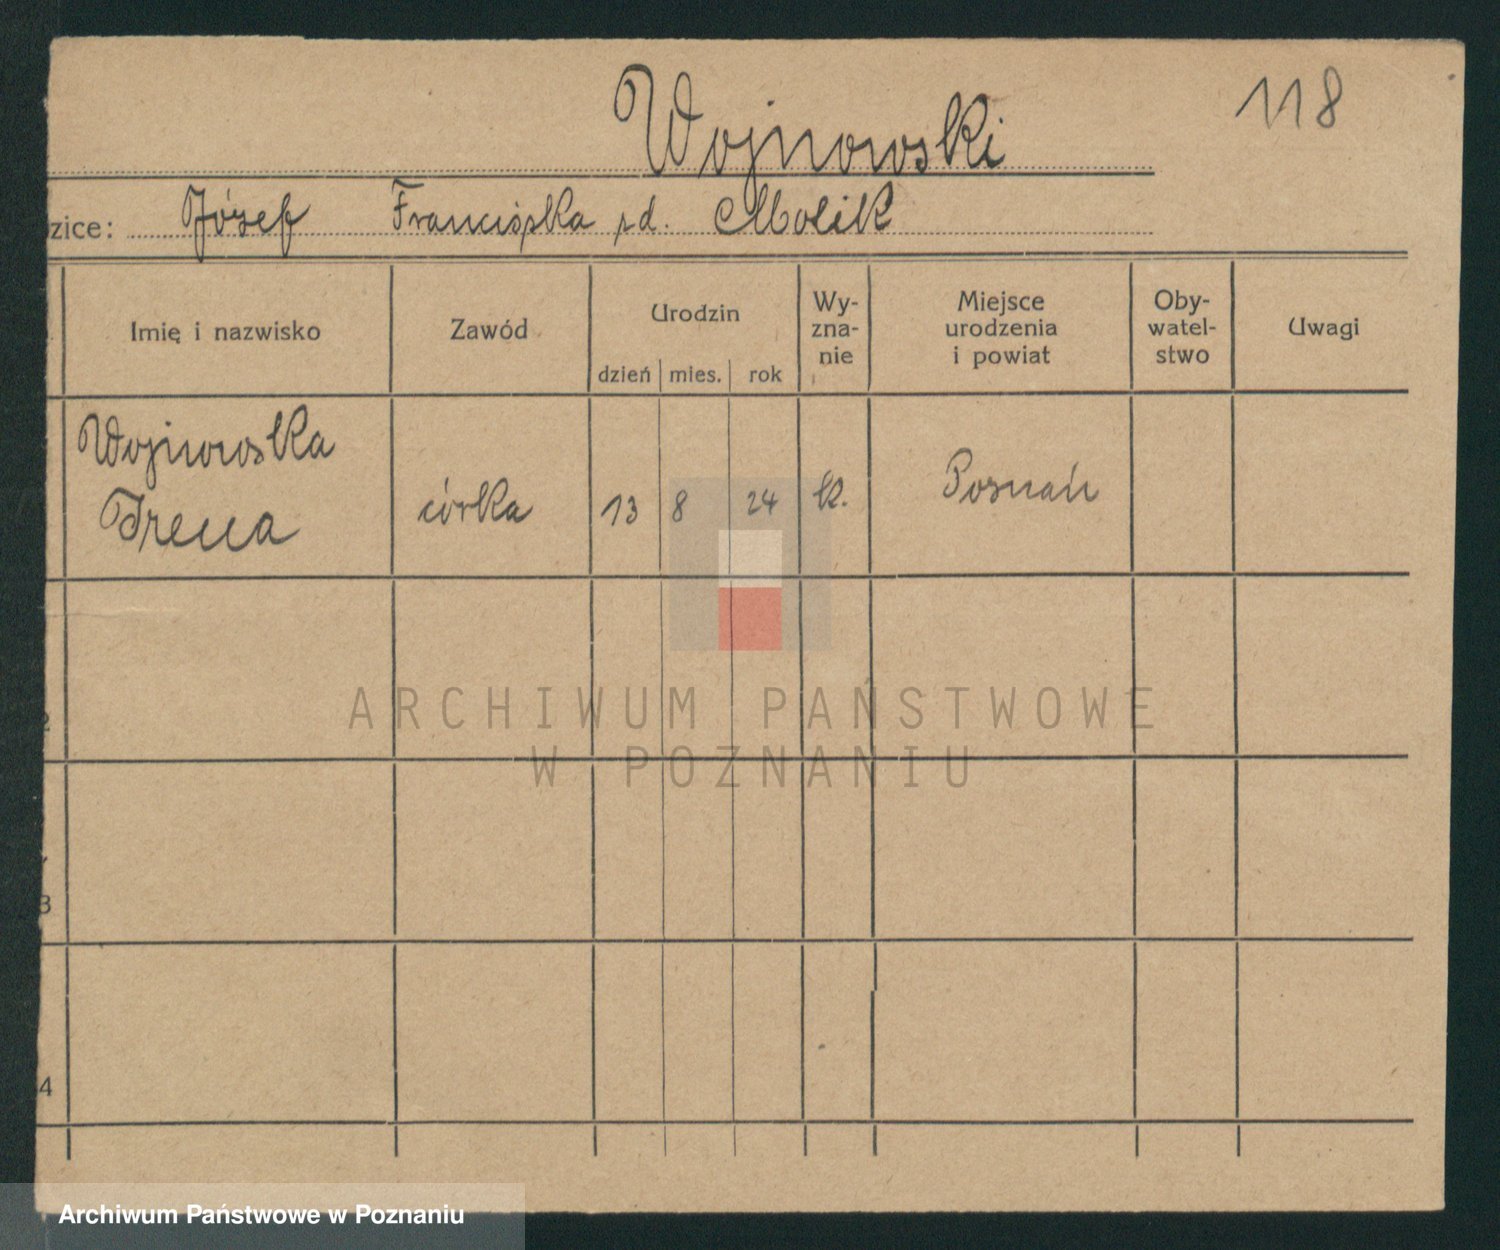 Wojnowski
118
zice: Józef Franciszka zd. Molik
Imię i nazwisko
Zawód
Urodzin
dzień mies. rok
Wy-
zna-
nie
Miejsce
urodzenia
i powiat
Oby-
watel-
stwo
Uwagi
Wojnowska
Irena
córka
13 8 24
k.
Poznań
2
3
4
ARCHIWUM PAŃSTWOWE
W POZNANIU
Archiwum Państwowe w Poznaniu